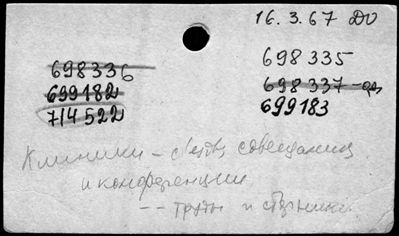 16.3.67 ДО
698335
698336
698337
699182
699183
714522
Клиники – съезды, совещания
и конференции
-- труды и сборники.